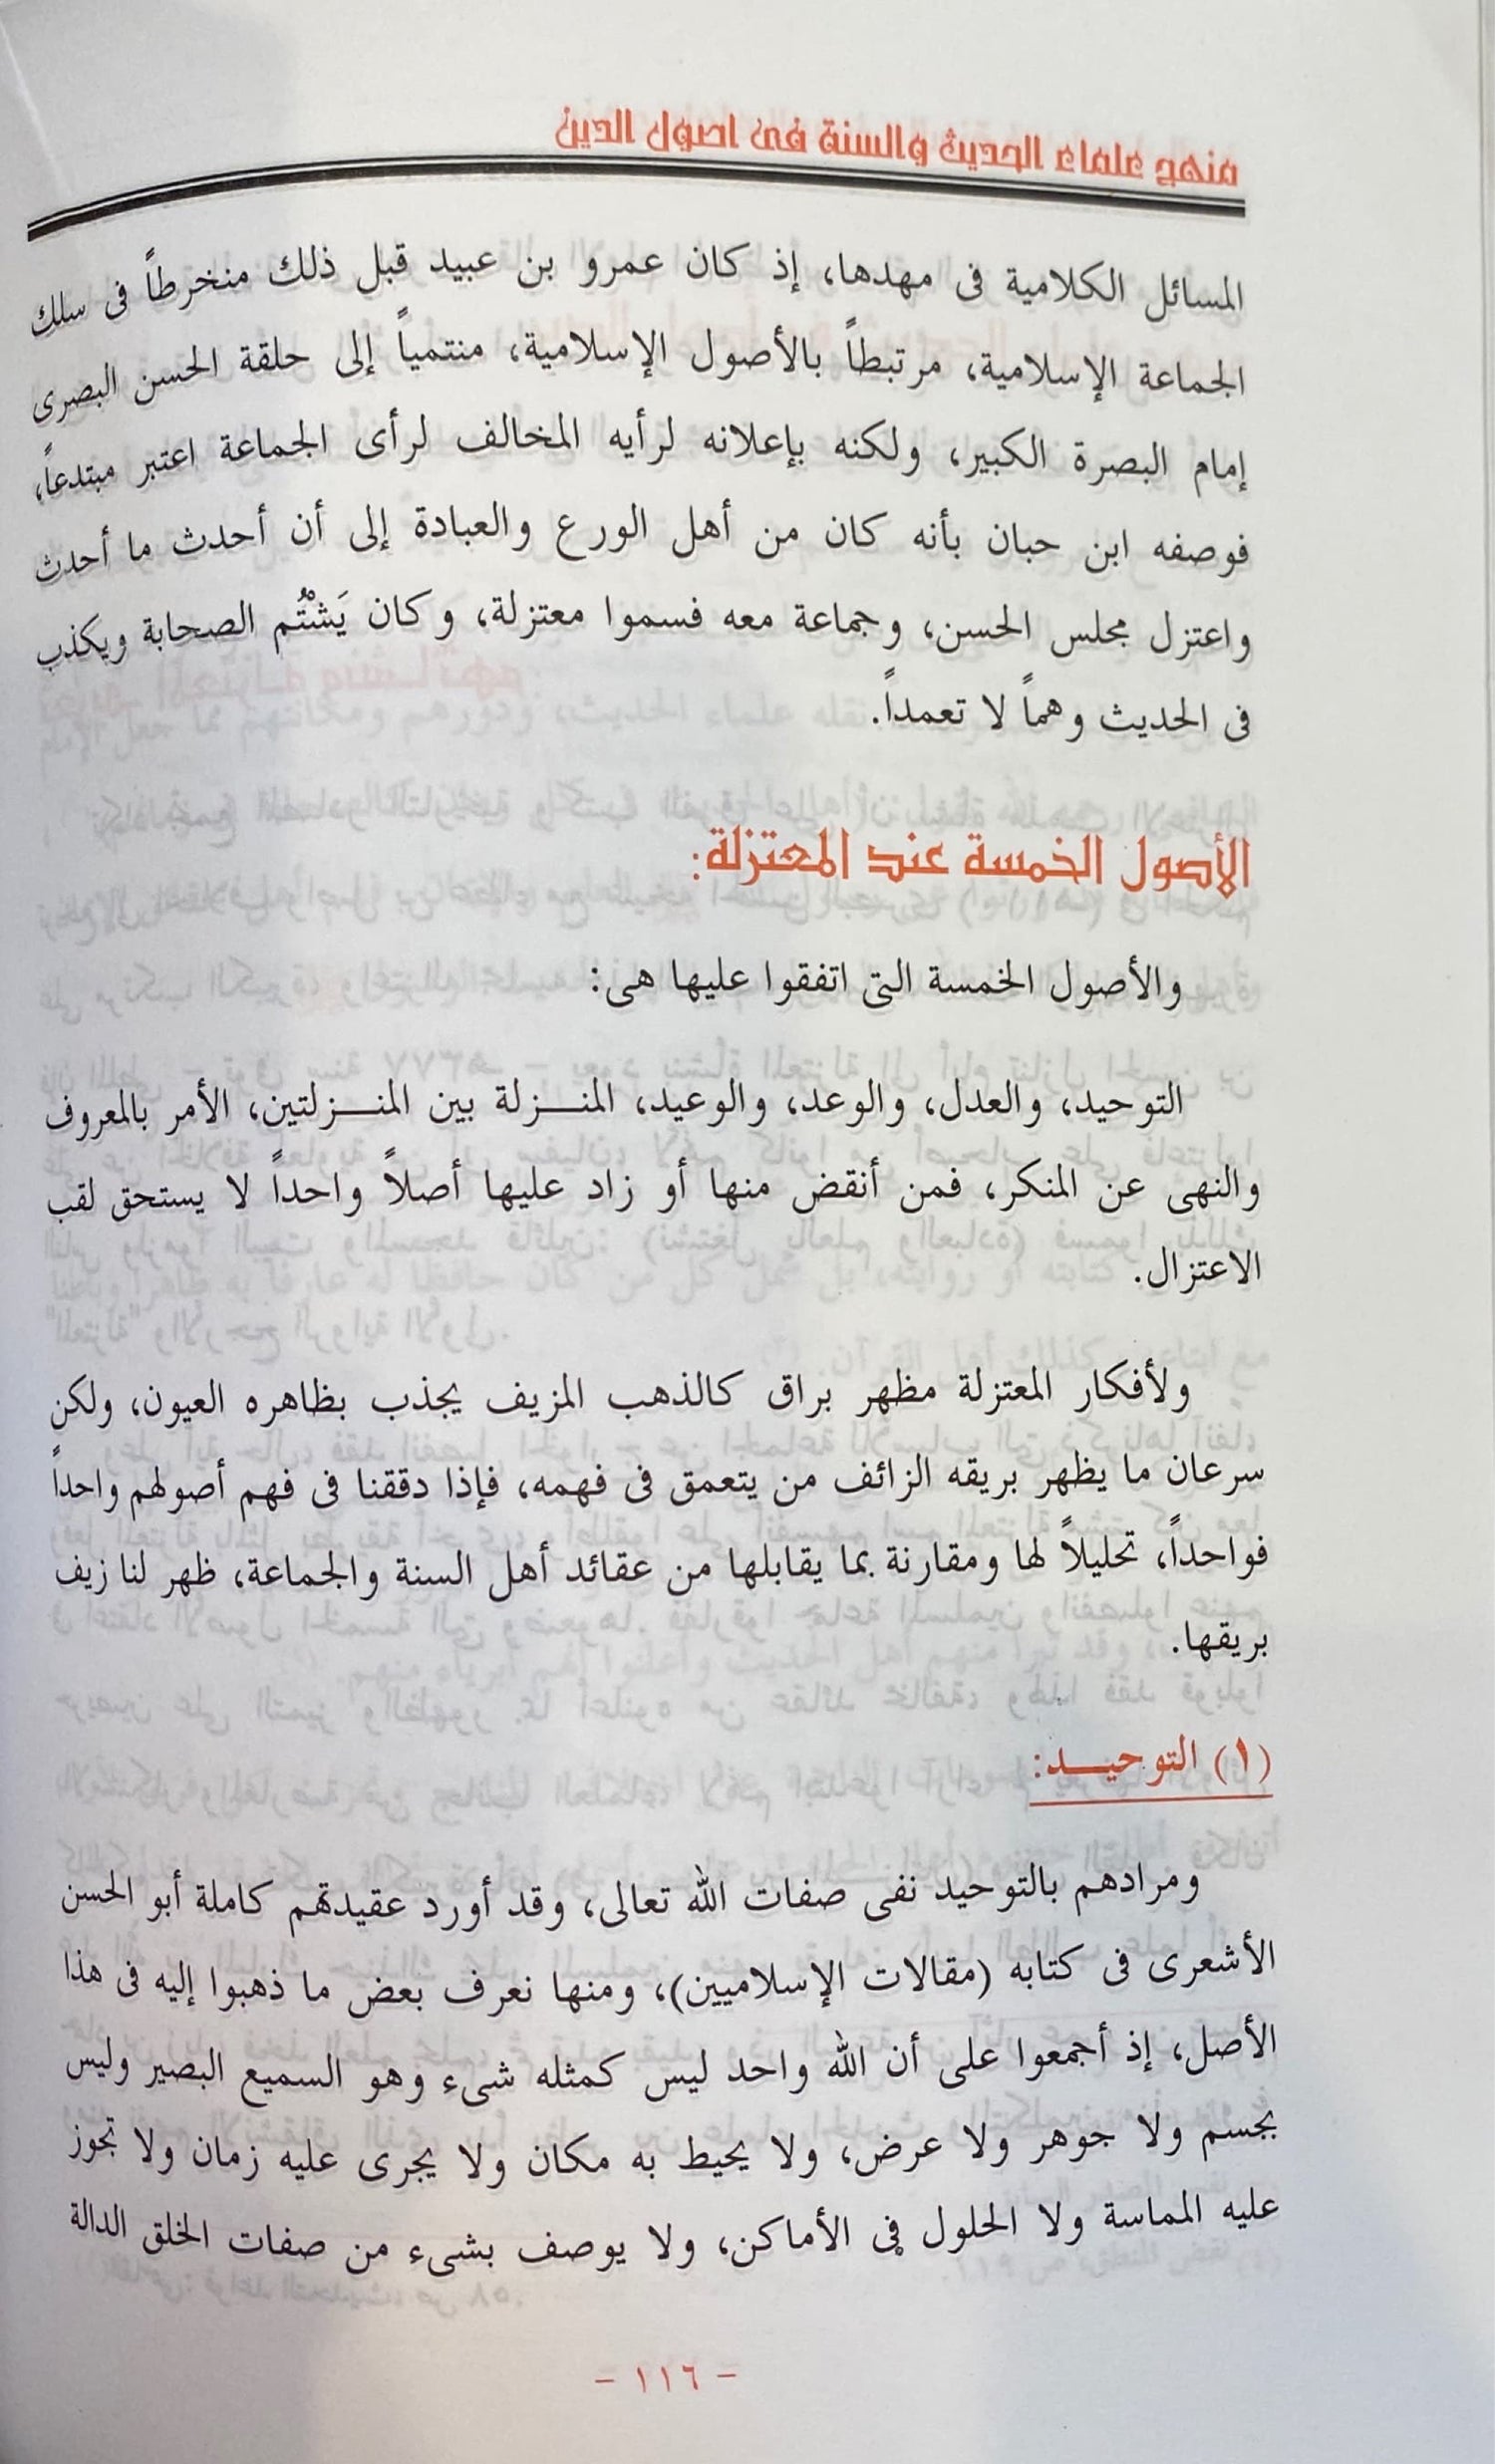 منهج علماء الحديث والسنة فى اصول الدين
المسائل الكلامية فى مهدها، إذ كان عمرو بن عبيد قبل ذلك منخرطاً فى سلك
الجماعة الإسلامية، مرتبطاً بالأصول الإسلامية، منتمياً إلى حلقة الحسن البصرى
إمام البصرة الكبير، ولكنه بإعلانه لرأيه المخالف لرأى الجماعة اعتبر مبتدعاً،
فوصفه ابن حبان بأنه كان من أهل الورع والعبادة إلى أن أحدث ما أحدث
واعتزل مجلس الحسن، وجماعة معه فسموا معتزلة، وكان يَشْتُم الصحابة ويكذب
فى الحديث وهماً لا تعمداً.
الأصول الخمسة عند المعتزلة:
والأصول الخمسة التى اتفقوا عليها هى:
التوحيد، والعدل، والوعد، والوعيد، المنـزلة بين المنـزلتين، الأمر بالمعروف
والنهى عن المنكر، فمن أنقض منها أو زاد عليها أصلاً واحداً لا يستحق لقب
الاعتزال.
ولأفكار المعتزلة مظهر براق كالذهب المزيف يجذب بظاهره العيون، ولكن
سرعان ما يظهر بريقه الزائف من يتعمق فى فهمه، فإذا دققنا فى فهم أصولهم واحداً
فواحداً، تحليلاً لها ومقارنة بما يقابلها من عقائد أهل السنة والجماعة، ظهر لنا زيف
بريقها.
(١) التوحيـد:
ومرادهم بالتوحيد نفى صفات الله تعالى، وقد أورد عقيدتهم كاملة أبو الحسن
الأشعرى فى كتابه (مقالات الإسلاميين)، ومنها نعرف بعض ما ذهبوا إليه فى هذا
الأصل، إذ أجمعوا على أن الله واحد ليس كمثله شىء وهو السميع البصير وليس
بجسم ولا جوهر ولا عرض، ولا يحيط به مكان ولا يجرى عليه زمان ولا تجوز
عليه المماسة ولا الحلول فى الأماكن، ولا يوصف بشىء من صفات الخلق الدالة
- ١١٦ -